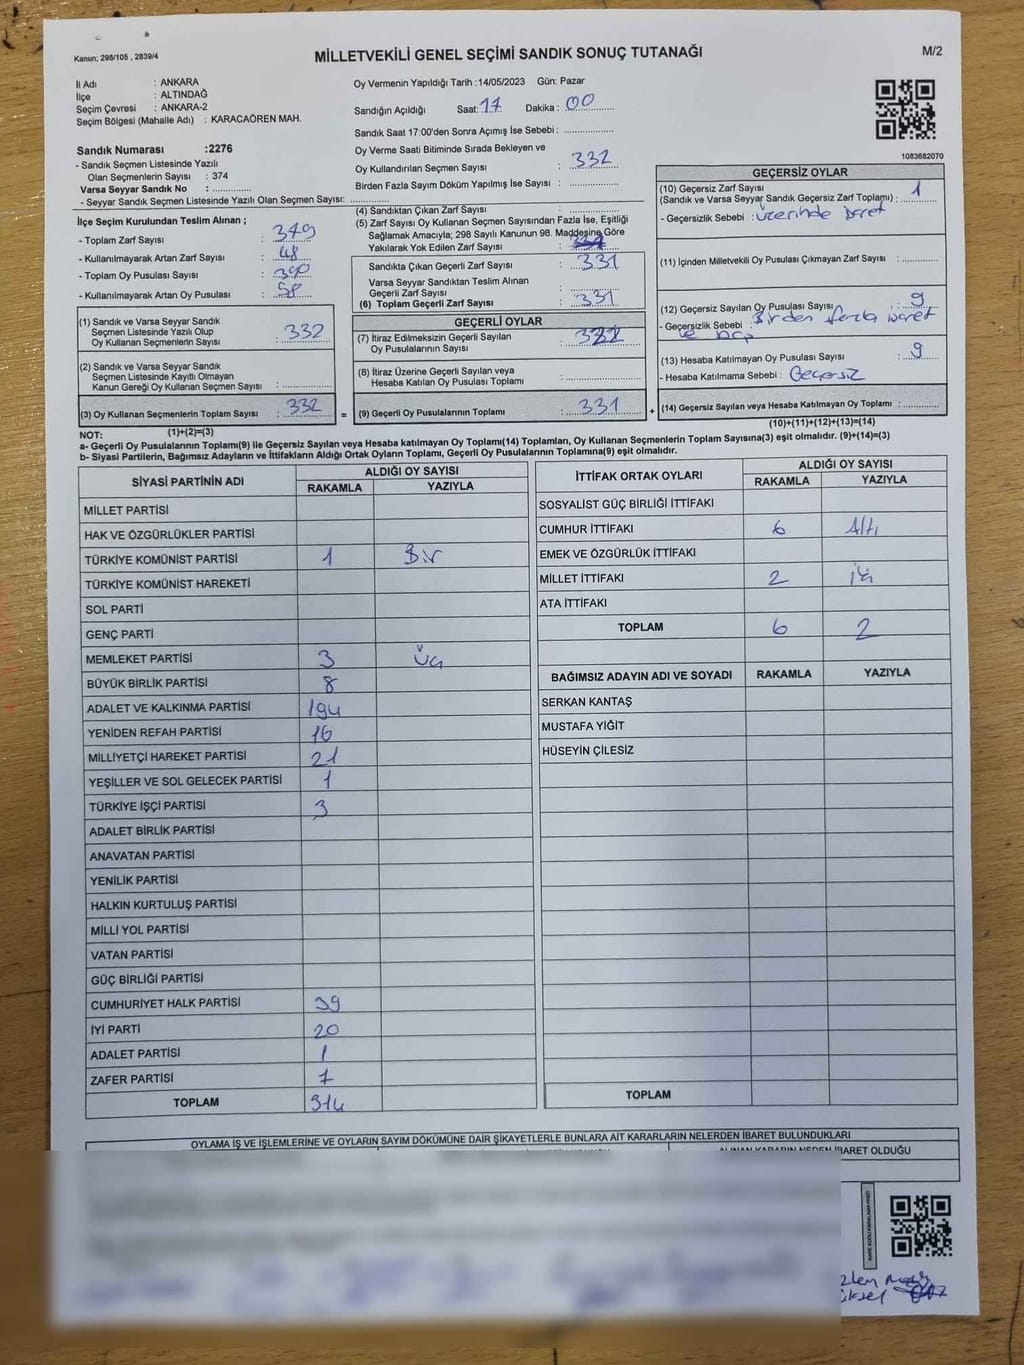 Kanun; 298/105 , 2839/4
MİLLETVEKİLİ GENEL SEÇİMİ SANDIK SONUÇ TUTANAĞI
M/2
İl Adı : ANKARA
İlçe : ALTINDAĞ
Seçim Çevresi : ANKARA-2
Seçim Bölgesi (Mahalle Adı) : KARACAÖREN MAH.
Sandık Numarası :2276
- Sandık Seçmen Listesinde Yazılı
Olan Seçmenlerin Sayısı : 374
Varsa Seyyar Sandık No :
- Seyyar Sandık Seçmen Listesinde Yazılı Olan Seçmen Sayısı:
Oy Vermenin Yapıldığı Tarih :14/05/2023 Gün: Pazar
Sandığın Açıldığı Saat: 17 Dakika : 00
Sandık Saat 17:00'den Sonra Açımış İse Sebebi :
Oy Verme Saati Bitiminde Sırada Bekleyen ve
Oy Kullandırılan Seçmen Sayısı : 332
Birden Fazla Sayım Döküm Yapılmış İse Sayısı :
1083682070
İlçe Seçim Kurulundan Teslim Alınan ;
- Toplam Zarf Sayısı : 379
- Kullanılmayarak Artan Zarf Sayısı : 48
- Toplam Oy Pusulası Sayısı : 390
- Kullanılmayarak Artan Oy Pusulası : 58
(1) Sandık ve Varsa Seyyar Sandık
Seçmen Listesinde Yazılı Olup
Oy Kullanan Seçmenlerin Sayısı : 332
(2) Sandık ve Varsa Seyyar Sandık
Seçmen Listesinde Kayıtlı Olmayan
Kanun Gereği Oy Kullanan Seçmen Sayısı :
(3) Oy Kullanan Seçmenlerin Toplam Sayısı : 332
(1)+(2)=(3)
(4) Sandıktan Çıkan Zarf Sayısı :
(5) Zarf Sayısı Oy Kullanan Seçmen Sayısından Fazla İse, Eşitliği
Sağlamak Amacıyla; 298 Sayılı Kanunun 98. Maddesine Göre
Yakılarak Yok Edilen Zarf Sayısı :
Sandıkta Çıkan Geçerli Zarf Sayısı : 331
Varsa Seyyar Sandıktan Teslim Alınan
Geçerli Zarf Sayısı :
(6) Toplam Geçerli Zarf Sayısı : 331
GEÇERLİ OYLAR
(7) İtiraz Edilmeksizin Geçerli Sayılan
Oy Pusulalarının Sayısı :
(8) İtiraz Üzerine Geçerli Sayılan veya
Hesaba Katılan Oy Pusulası Toplamı :
= (9) Geçerli Oy Pusulalarının Toplamı : 331 +
GEÇERSİZ OYLAR
(10) Geçersiz Zarf Sayısı
(Sandık ve Varsa Seyyar Sandık Geçersiz Zarf Toplamı) : 1
- Geçersizlik Sebebi : Üzerinde
(11) İçinden Milletvekili Oy Pusulası Çıkmayan Zarf Sayısı :
(12) Geçersiz Sayılan Oy Pusulası Sayısı : 9
- Geçersizlik Sebebi : Birden fazla işaret
(13) Hesaba Katılmayan Oy Pusulası Sayısı : 9
- Hesaba Katılmama Sebebi : Geçersiz
(14) Geçersiz Sayılan veya Hesaba Katılmayan Oy Toplamı :
(10)+(11)+(12)+(13)=(14)
NOT:
a- Geçerli Oy Pusulalarının Toplamı(9) ile Geçersiz Sayılan veya Hesaba katılmayan Oy Toplamı(14) Toplamları, Oy Kullanan Seçmenlerin Toplam Sayısına(3) eşit olmalıdır. (9)+(14)=(3)
b- Siyasi Partilerin, Bağımsız Adayların ve İttifakların Aldığı Ortak Oyların Toplamı, Geçerli Oy Pusulalarının Toplamına(9) eşit olmalıdır.
SİYASİ PARTİNİN ADI
ALDIĞI OY SAYISI
RAKAMLA YAZIYLA
MİLLET PARTİSİ
HAK VE ÖZGÜRLÜKLER PARTİSİ
TÜRKİYE KOMÜNİST PARTİSİ 1 Bir
TÜRKİYE KOMÜNİST HAREKETİ
SOL PARTİ
GENÇ PARTİ
MEMLEKET PARTİSİ 3 Üç
BÜYÜK BİRLİK PARTİSİ 8
ADALET VE KALKINMA PARTİSİ 194
YENİDEN REFAH PARTİSİ 16
MİLLİYETÇİ HAREKET PARTİSİ 21
YEŞİLLER VE SOL GELECEK PARTİSİ 1
TÜRKİYE İŞÇİ PARTİSİ 3
ADALET BİRLİK PARTİSİ
ANAVATAN PARTİSİ
YENİLİK PARTİSİ
HALKIN KURTULUŞ PARTİSİ
MİLLİ YOL PARTİSİ
VATAN PARTİSİ
GÜÇ BİRLİĞİ PARTİSİ
CUMHURİYET HALK PARTİSİ 39
İYİ PARTİ 20
ADALET PARTİSİ 1
ZAFER PARTİSİ 7
TOPLAM 314
İTTİFAK ORTAK OYLARI
ALDIĞI OY SAYISI
RAKAMLA YAZIYLA
SOSYALİST GÜÇ BİRLİĞİ İTTİFAKI
CUMHUR İTTİFAKI 6 Altı
EMEK VE ÖZGÜRLÜK İTTİFAKI
MİLLET İTTİFAKI 2 iki
ATA İTTİFAKI
TOPLAM 6 2
BAĞIMSIZ ADAYIN ADI VE SOYADI RAKAMLA YAZIYLA
SERKAN KANTAŞ
MUSTAFA YİĞİT
HÜSEYİN ÇİLESİZ
TOPLAM
OYLAMA İŞ VE İŞLEMLERİNE VE OYLARIN SAYIM DÖKÜMÜNE DAİR ŞİKAYETLERLE BUNLARA AİT KARARLARIN NELERDEN İBARET BULUNDUKLARI
ALINAN KARARIN NEDEN İBARET OLDUĞU